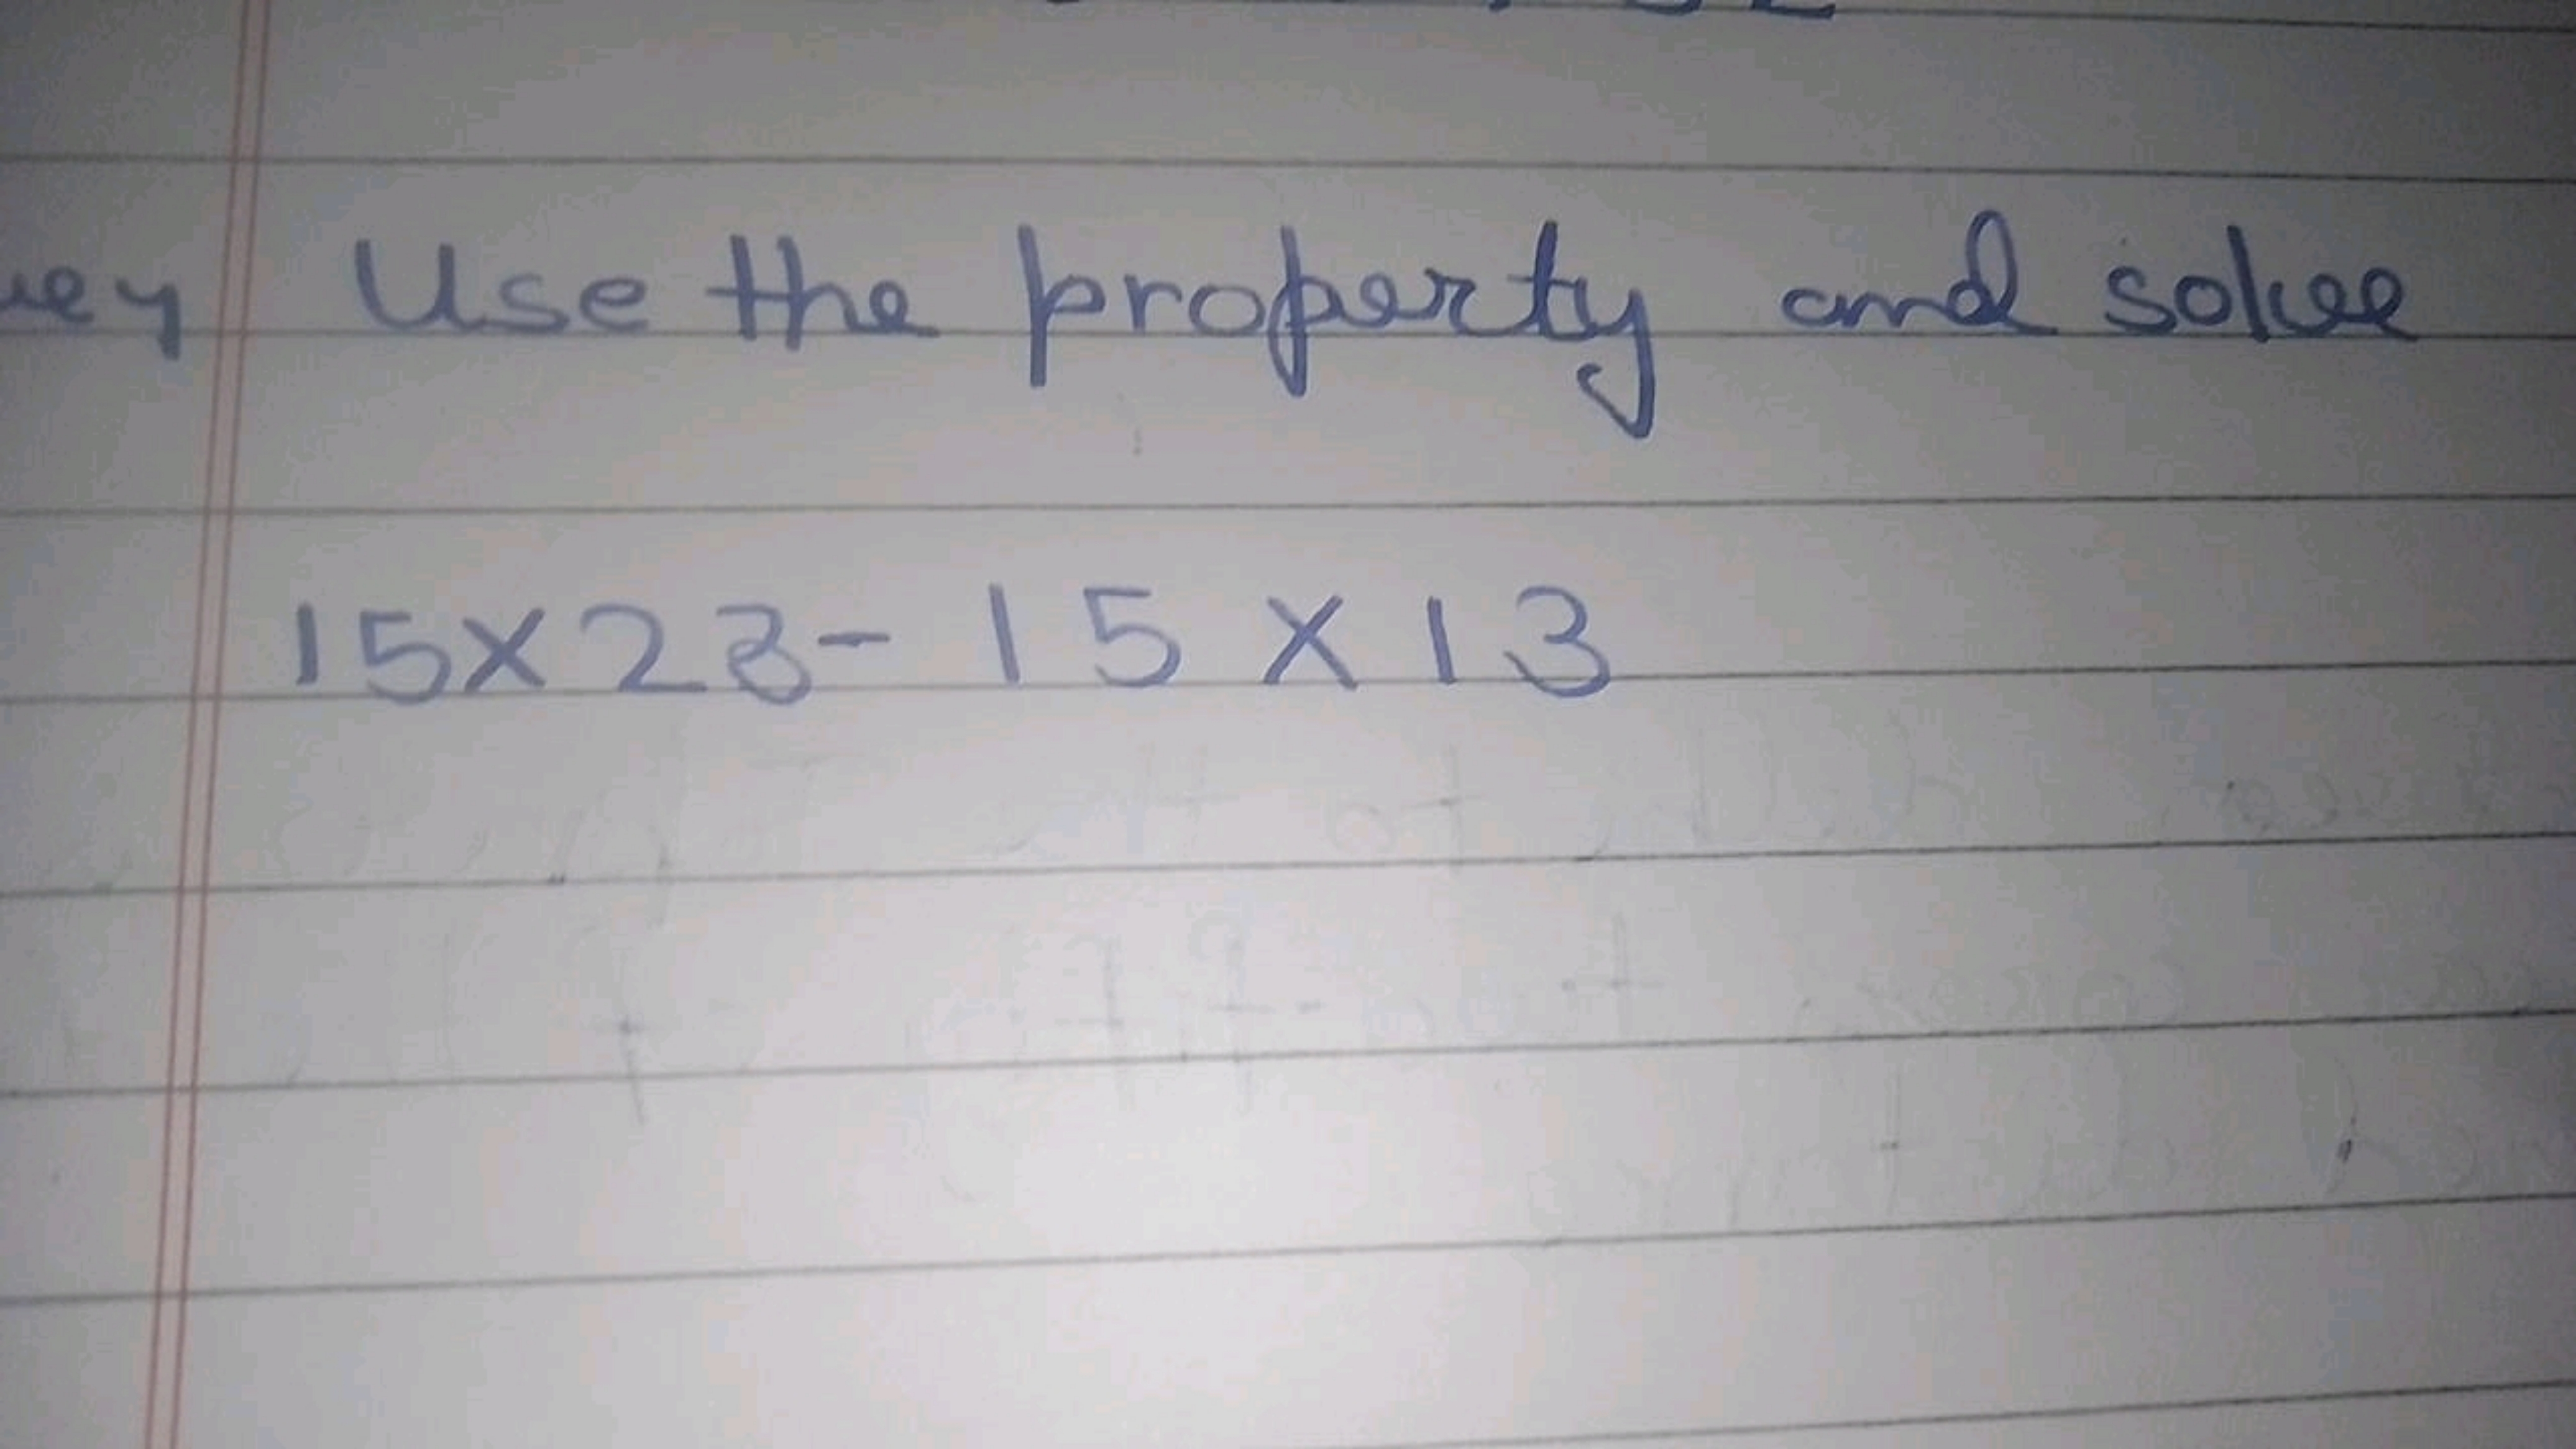 Use the property and solve
15×23- 15 × 13